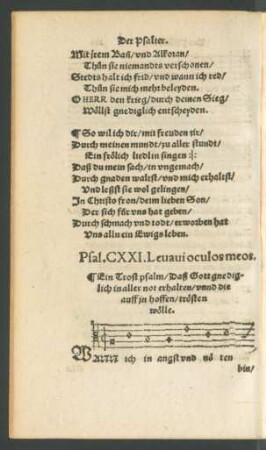 Der Psalter.
Mit jrem Baß/ vnd Alkoran/
Thůn sie niemandts verschonen/
Stedts halt ich frid/ vnd wann ich red/
Thůn sie mich meht beleyden.
O HERR den krieg/ durch deinen Sieg/
Wöllst gnediglich entscheyden.
¶ So wil ich dir/ mit freuden zir/
Durch meinen mundt/ zu aller stundt/
Ein frölich liedlin singen :|:
Daß du mein sach/ in vngemach/
Durch gnaden waltst/ vnd mich erhaltst/
Vnd leßst sie wol gelingen/
In Christo fron/ deim lieben Son/
Der sich für vns hat geben/
Durch schmach vnd todt/ erworben hat
Vns alln ein Ewigs leben.
Psal. CXXI. Leuaui oculos meos.
¶ Ein Trost psalm/ Daß Gott gnedig-
lich in aller not erhalten/ vnnd die
auff jn hoffen/ trösten
wölle.
WANN ich in angst vnd nö ten
bin/